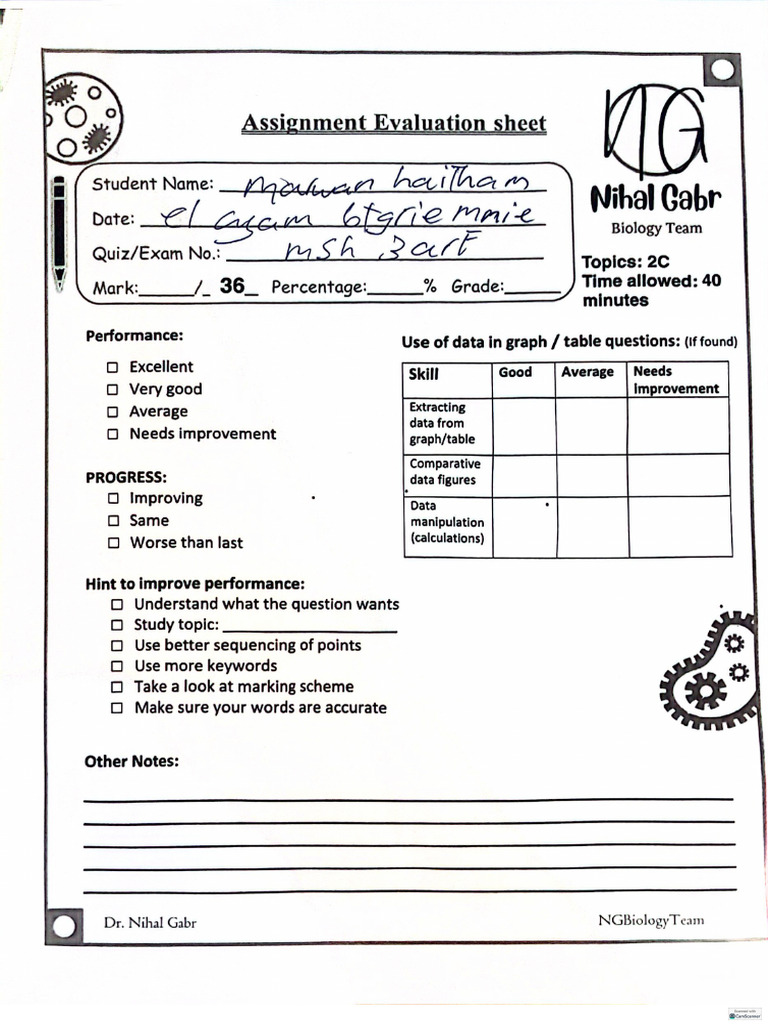 Assignment Evaluation sheet
NG
Nihal Gabr
Biology Team
Student Name: marwan haitham
Date: el ayam btgrie mnnie
Quiz/Exam No.: msh 3arf
Mark:_____/_ 36_ Percentage:_____% Grade:_____
Topics: 2C
Time allowed: 40
minutes
Performance:
☐ Excellent
☐ Very good
☐ Average
☐ Needs improvement
PROGRESS:
☐ Improving
☐ Same
☐ Worse than last
Use of data in graph / table questions: (If found)
Skill Good Average Needs Improvement
Extracting data from graph/table
Comparative data figures
Data manipulation (calculations)
Hint to improve performance:
☐ Understand what the question wants
☐ Study topic: ____________________
☐ Use better sequencing of points
☐ Use more keywords
☐ Take a look at marking scheme
☐ Make sure your words are accurate
Other Notes:
Dr. Nihal Gabr
NGBiologyTeam
CamScanner